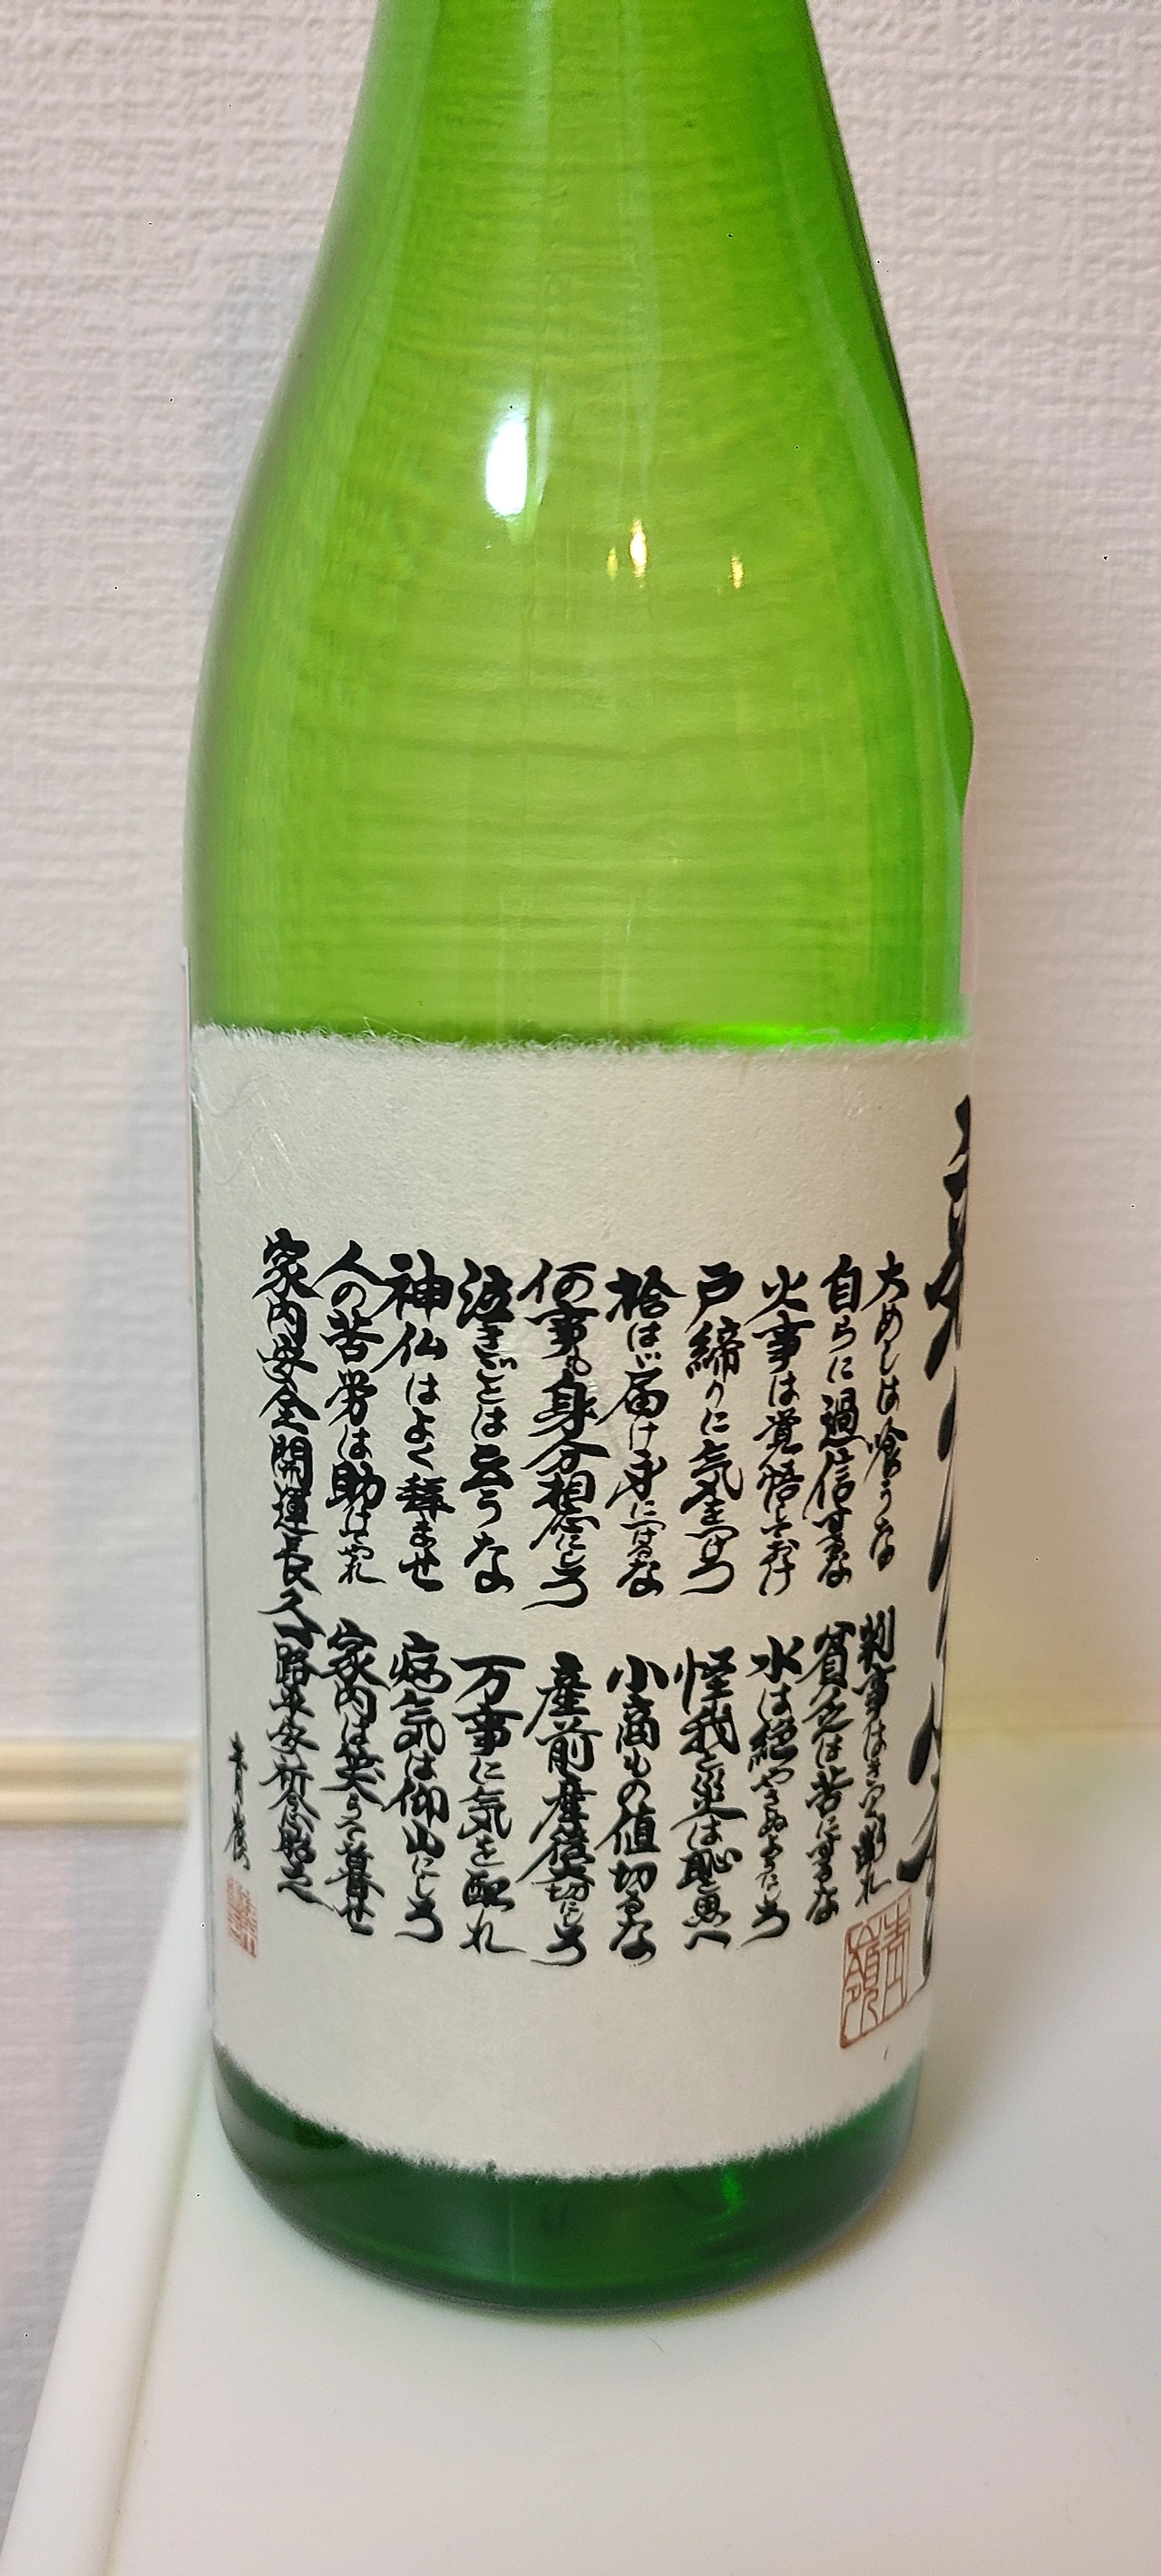 大めしは喰うな
判事はきつう断れ
自らに過信するな
貧乏は苦にするな
火事は覚悟しておけ
水は絶やさぬようにしろ
戸締りに気をつけろ
怪我と災は恥と思へ
拾はば届け身につけるな
小商もの値切るな
何事も身分相応にしろ
産前産後大切にしろ
泣きごとは云うな
万事に気を配れ
神仏はよく拝ませ
病気は仰山にしろ
人の苦労は助けてやれ
家内は笑うて暮せ
家内安全開運長久
青嶺
青嶺